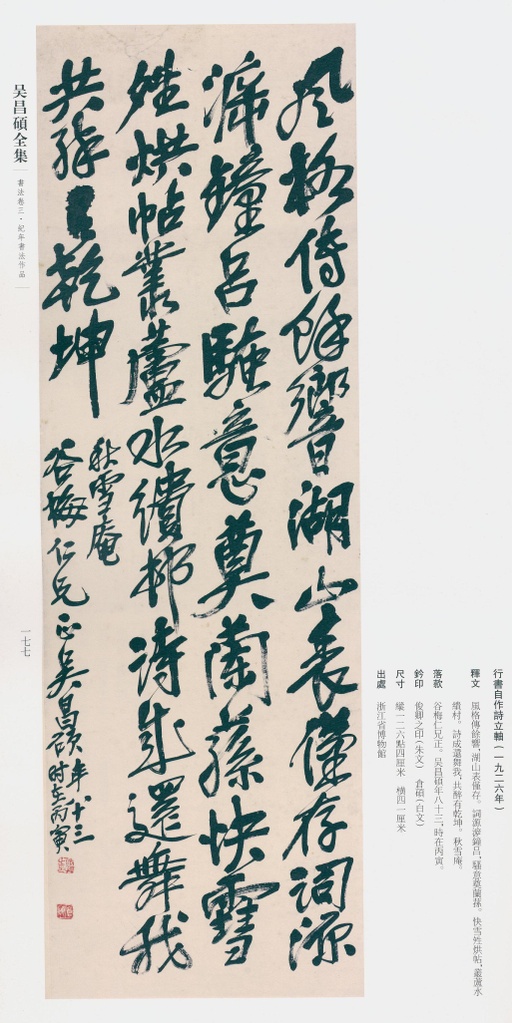 風格傳餘響湖山表僅存詞源
滂鐘呂騷意奠蘭蓀快雪
姓烘帖叢蘆水繢邨詩成還舞我
共醉有乾坤
秋雪庵
谷梅仁兄正吴昌碩年八十三
时在丙寅
行書自作詩立軸(一九二六年)
釋文 風格傳餘響,湖山表僅存。詞源滂鐘吕,騷意奠蘭蓀。快雪姓烘帖,叢蘆水
繢村。詩成還舞我,共醉有乾坤。秋雪庵。
落款 谷梅仁兄正。吴昌碩年八十三,時在丙寅。
鈐印 俊卿之印(朱文) 倉碩(白文)
尺寸 縱一二六點四厘米 横四一厘米
出處 浙江省博物館
吴昌碩全集
書法卷三·紀年書法作品
一七七